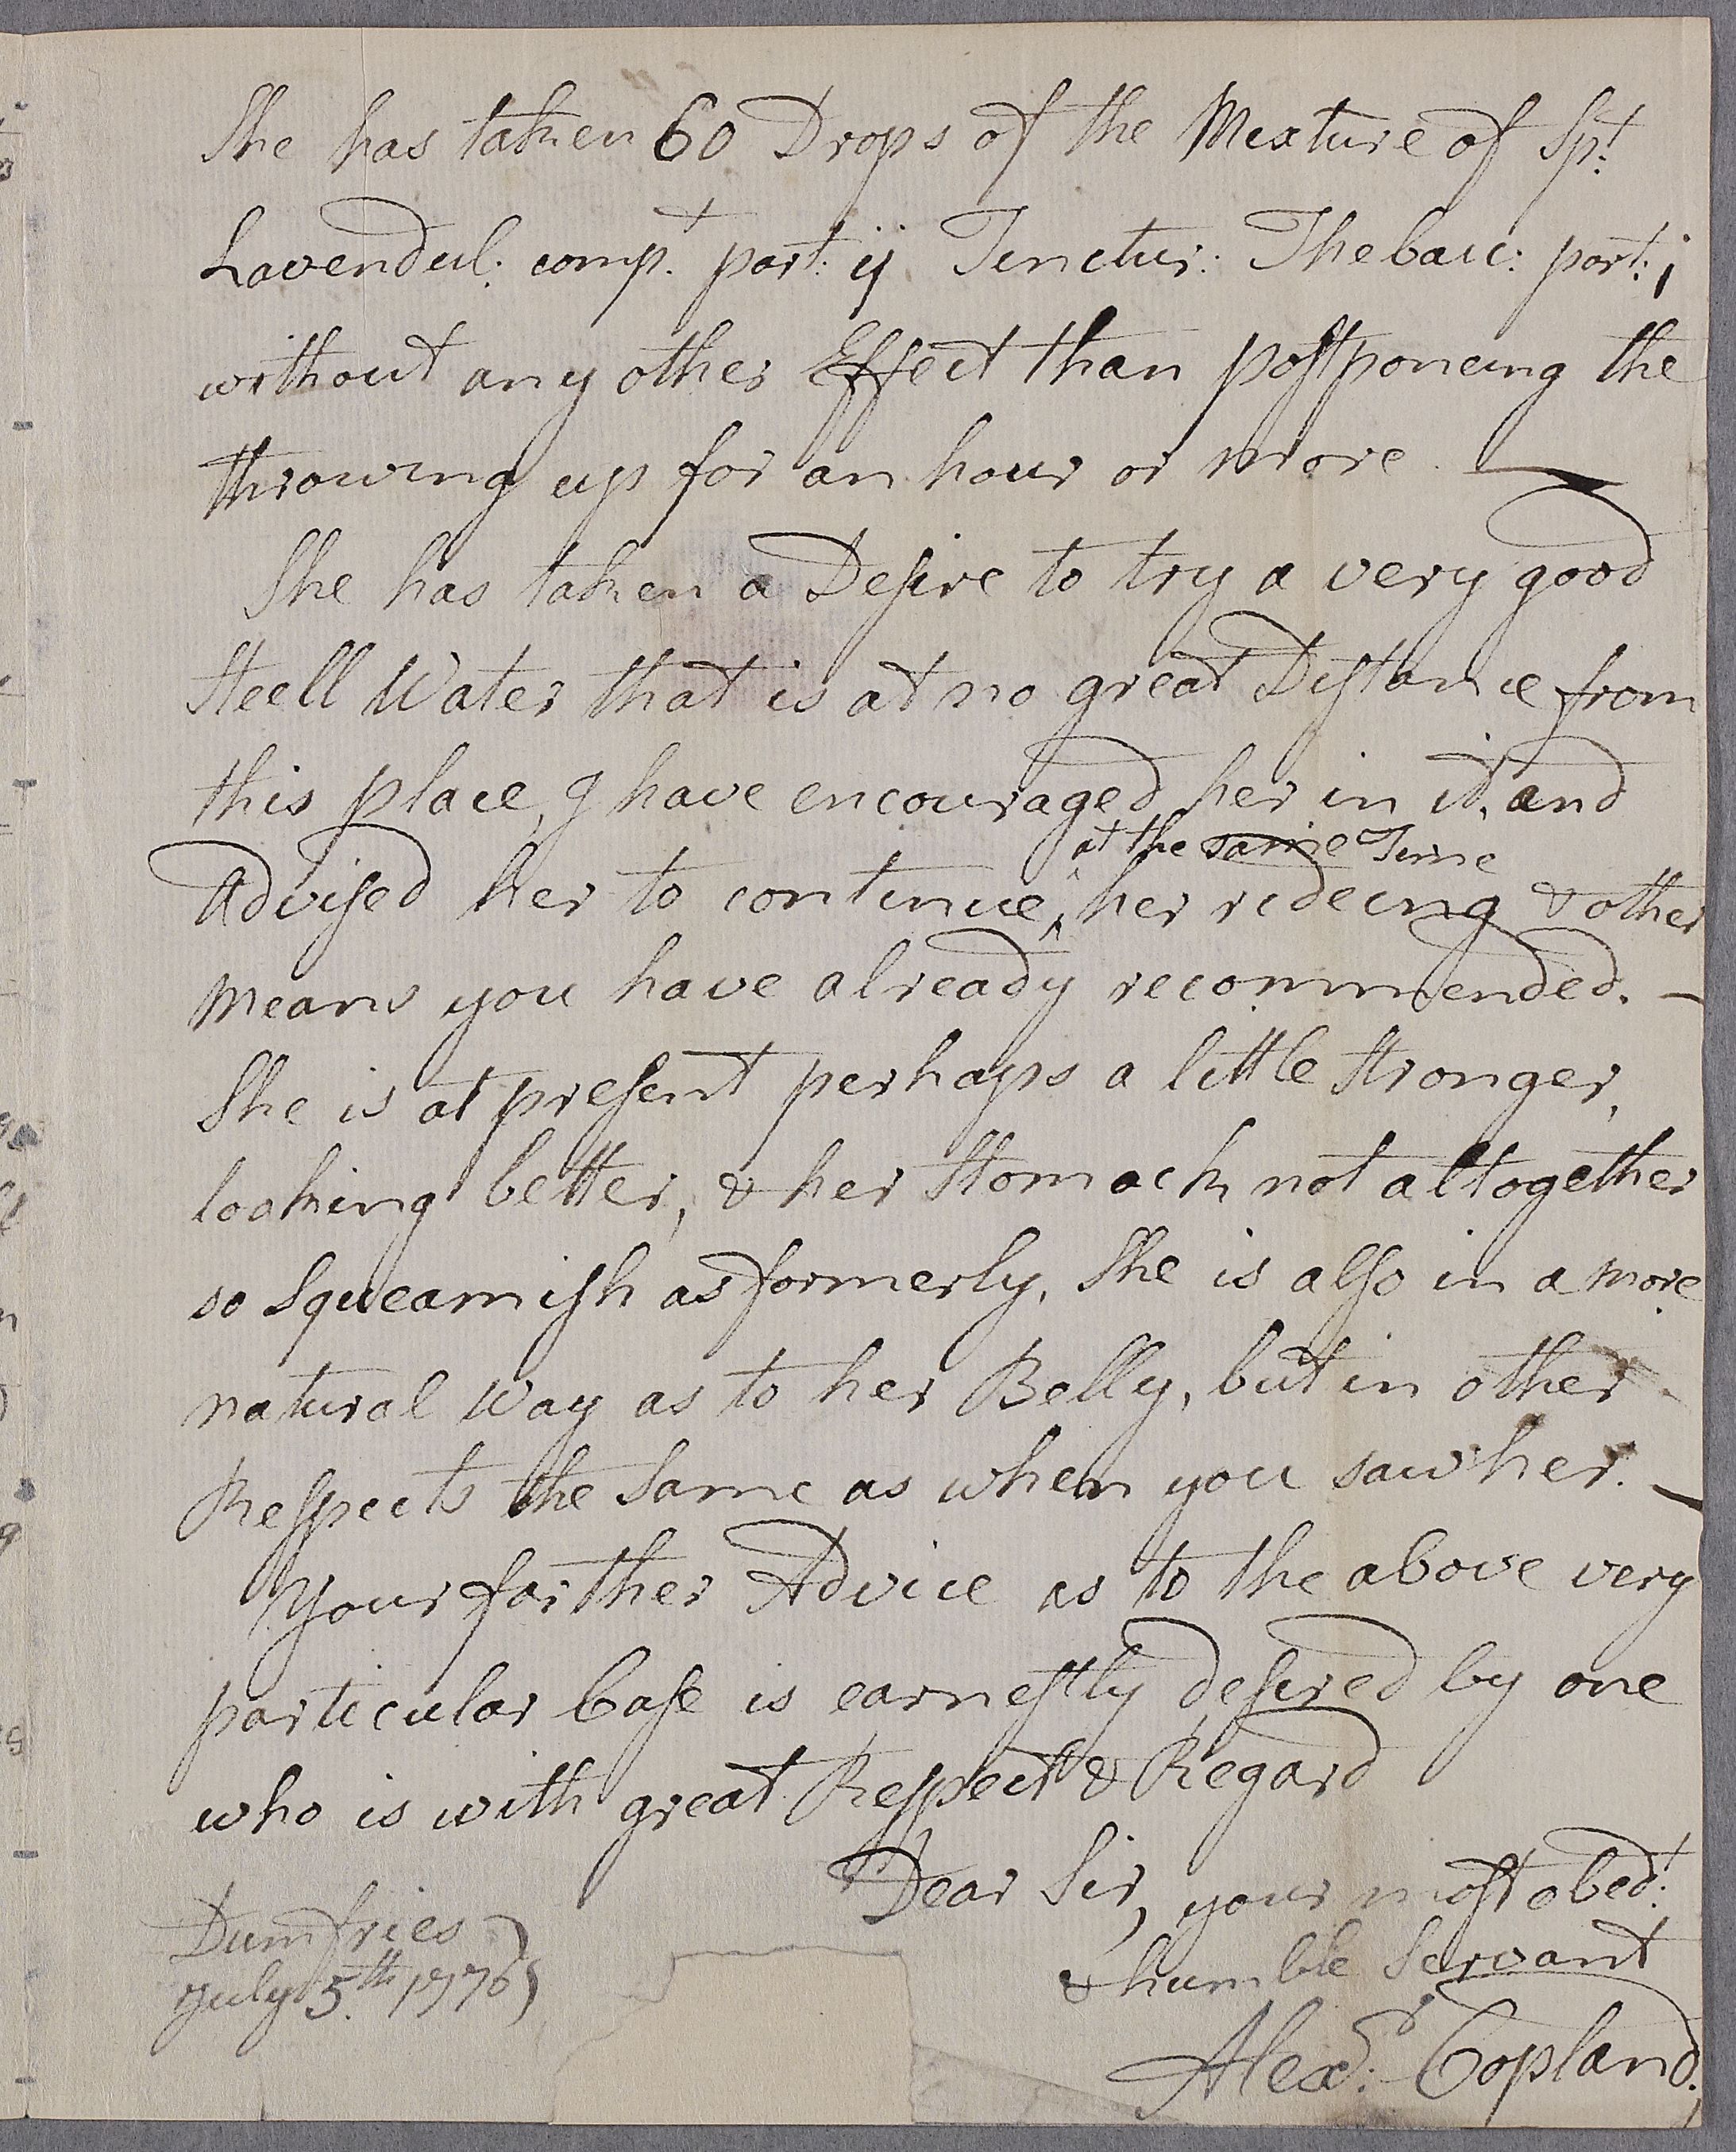 She has taken 60 Drops of the Mixture of Sp:t
Lavendul: comp:t part: ij Tinctur: Thebaic: part: j
without any other Effect than postponeing the
throwing up for an hour or more. —
She has taken a Desire to try a very good
Steell Water that is at no great Distance from
this place, I have encouraged her in it, and
at the same Time
Advised her to continue, ^ her rideing & other
means you have already recommended. —
She is at present perhaps a little stronger,
looking better, & her Stomach not altogether
so Squeamish as formerly, She is also in a more
natural Way as to her Belly, but in other
Respects the Same as when you saw her. —
Your farther Advice as to the above very
particular Case is earnestly desired by one
who is with great Respect & Regard
Dear Sir, your most obed:t
& humble Servant
Alexr: Copland.
Dumfries
July 5th. 1776